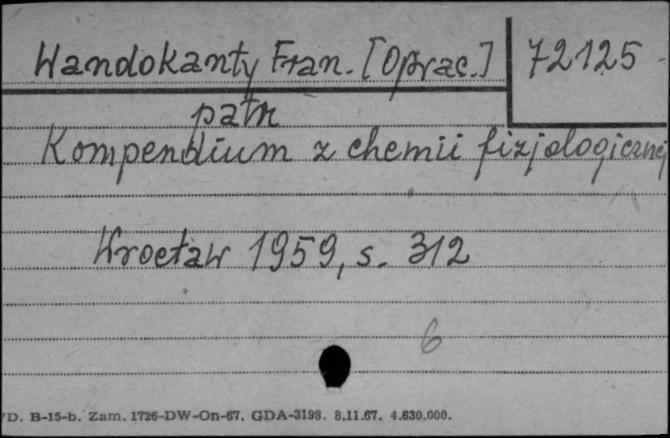 Wandokanty Fran. [Oprac.] 72125
patrz
Kompendium z chemii fizjologicznej
Wrocław 1959, s. 312
6
D. B-15-b. Zam. 1726-DW-On-67. GDA-3198. 8.11.67. 4.630.000.